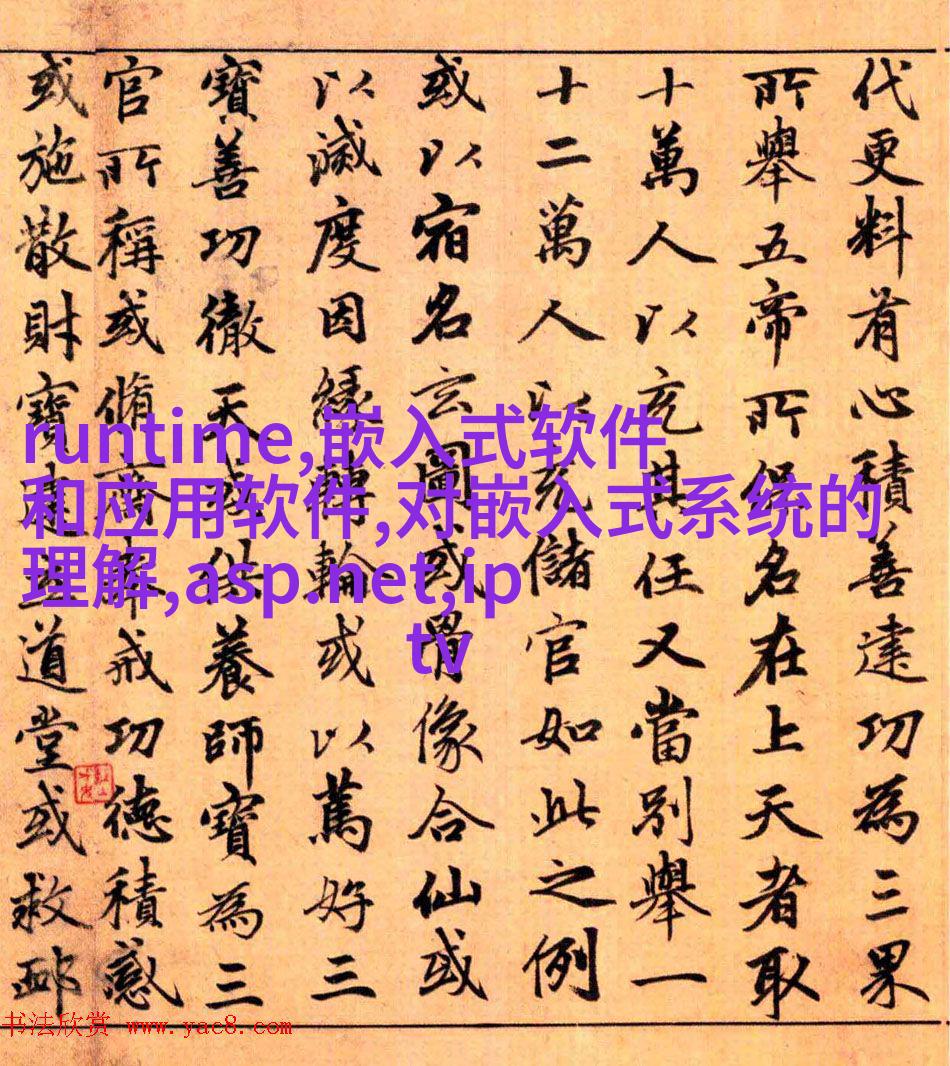 代更料有心積善建功為三果
所舉五帝所保名在上天者取
十萬人以充其任又當別舉一
十二萬人以充儲官如此之例
或以宿名玄圖或骨像合仙或
以滅度因緣轉輪或以篤好三
寶善功徹天或供養師寶為三
官所稱或脩齋奉戒功德積感
或施散財寶建立道堂或救卹
runtime,嵌入式软件
和应用软件,对嵌入式系统的
理解,asp.net,ip
tv
书法欣赏 www.yac8.com